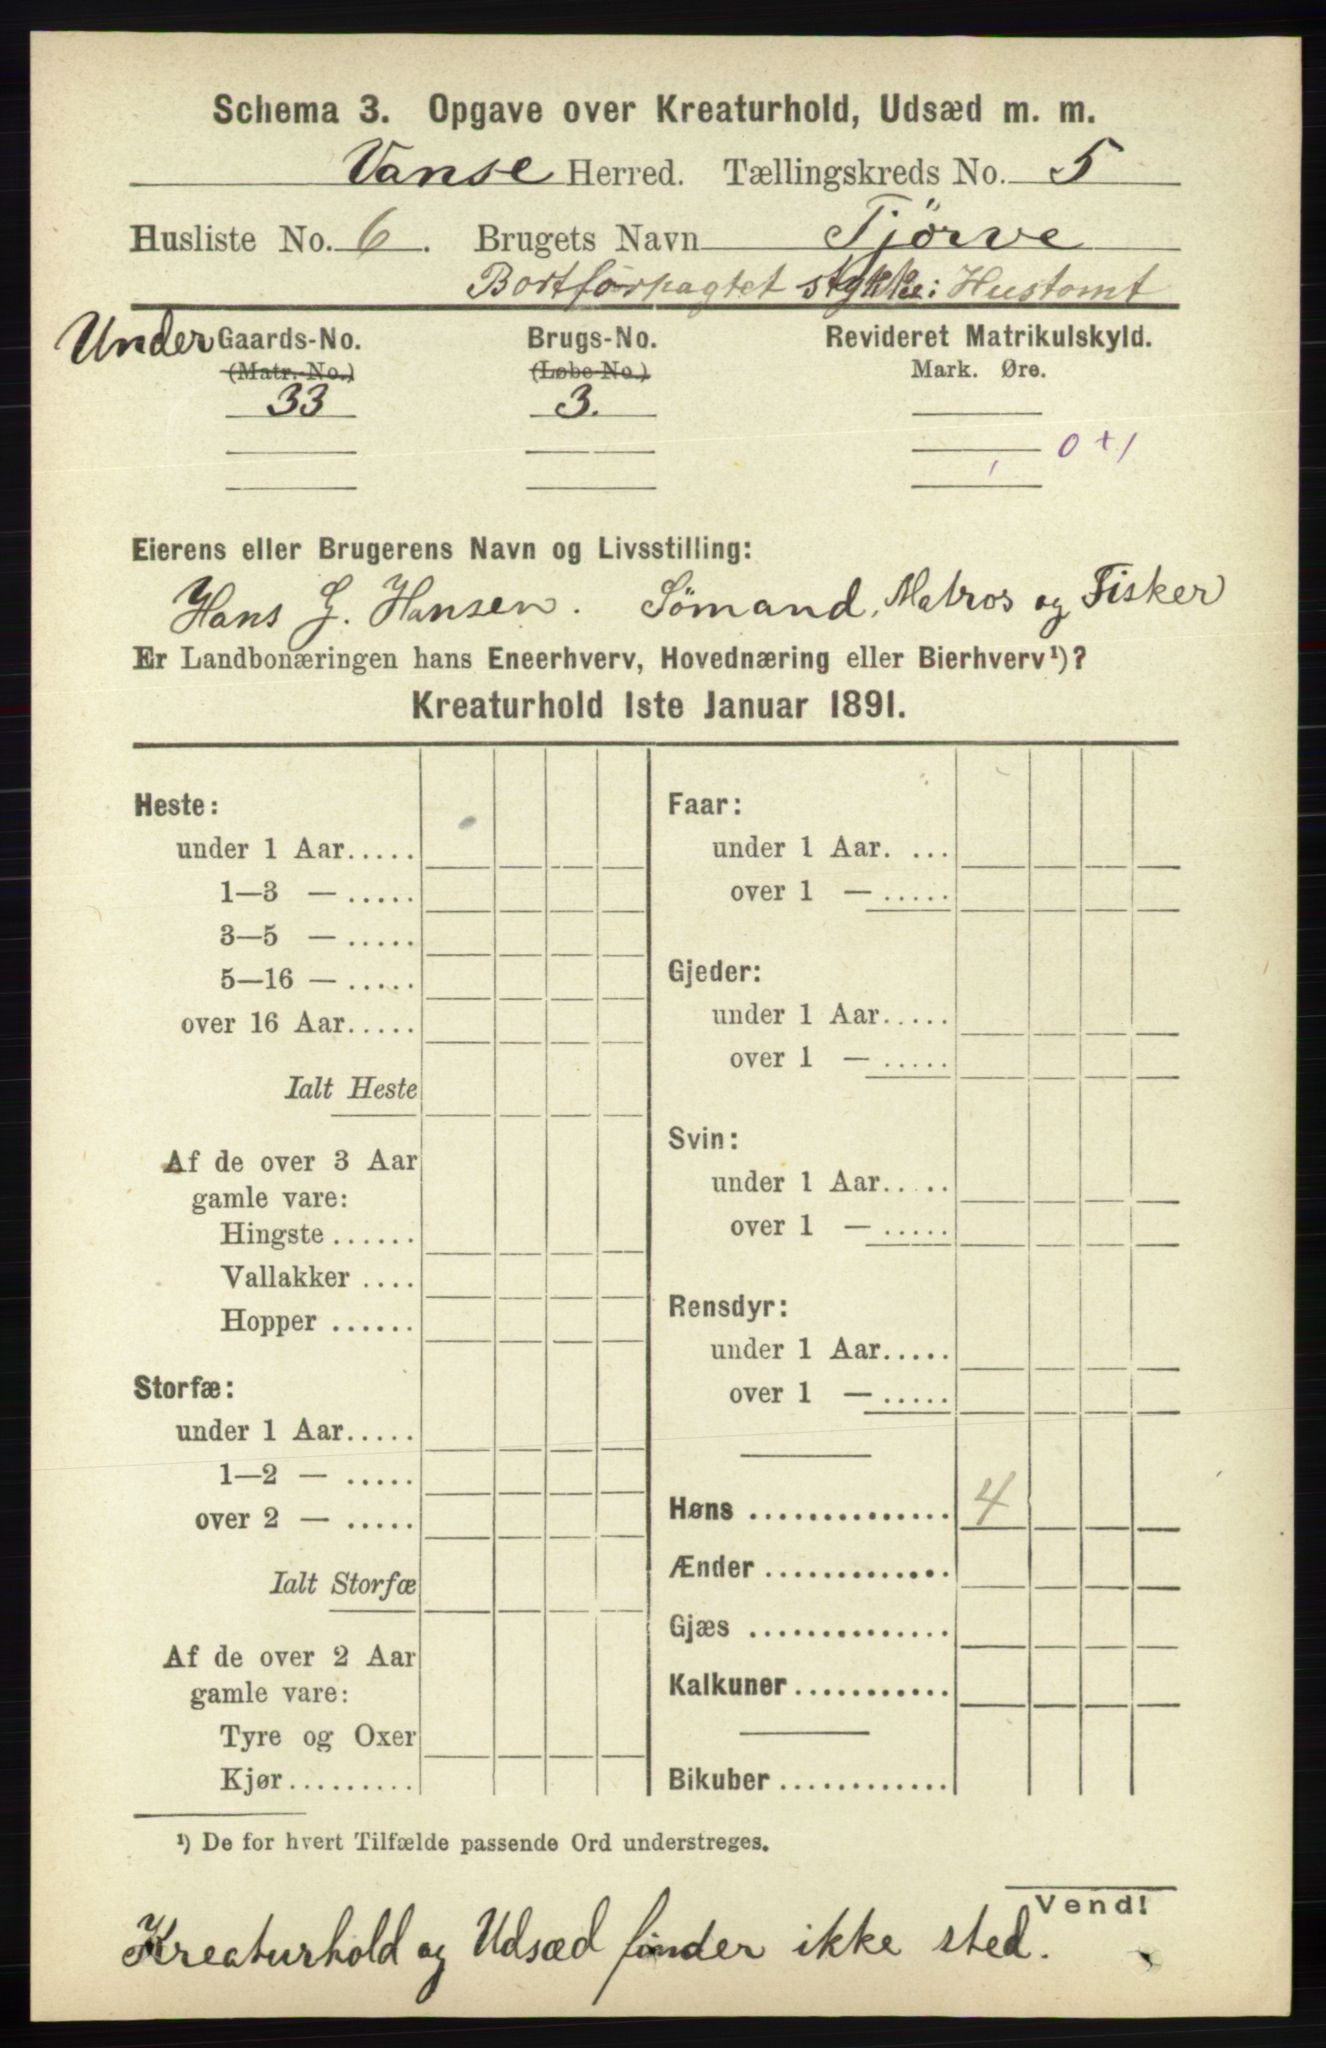 Schema 3. Opgave over Kreaturhold, Udsæd m. m.
Vanse Herred. Tællingskreds No. 5
Husliste No. 6. Brugets Navn Tjørve
Bortforpagtet stykke: Hustomt
Under Gaards-No. Brugs-No. Revideret Matrikulskyld.
(Matr.-No.) (Løbe-No.) Mark. Øre.
33 3.
0 + 1
Eierens eller Brugerens Navn og Livsstilling:
Hans G. Hansen. Sömand, Matros og Fisker
Er Landbonæringen hans Eneerhverv, Hovednæring eller Bierhverv¹)?
Kreaturhold 1ste Januar 1891.
Heste:
under 1 Aar.....
1—3 — .....
3—5 — .....
5—16 — .....
over 16 Aar.....
Ialt Heste
Af de over 3 Aar
gamle vare:
Hingste......
Vallakker ....
Hopper ......
Storfæ:
under 1 Aar.....
1—2 — .....
over 2 — .....
Ialt Storfæ
Af de over 2 Aar
gamle vare:
Tyre og Oxer
Kjør.........
Faar:
under 1 Aar. ...
over 1 — .....
Gjeder:
under 1 Aar.....
over 1 — .....
Svin:
under 1 Aar.....
over 1 — .....
Rensdyr:
under 1 Aar.....
over 1 — .....
Høns .............. 4
Ænder .............
Gjæs ..............
Kalkuner...........
Bikuber ............
¹) De for hvert Tilfælde passende Ord understreges.
Vend!
Kreaturhold og Udsæd finder ikke sted.